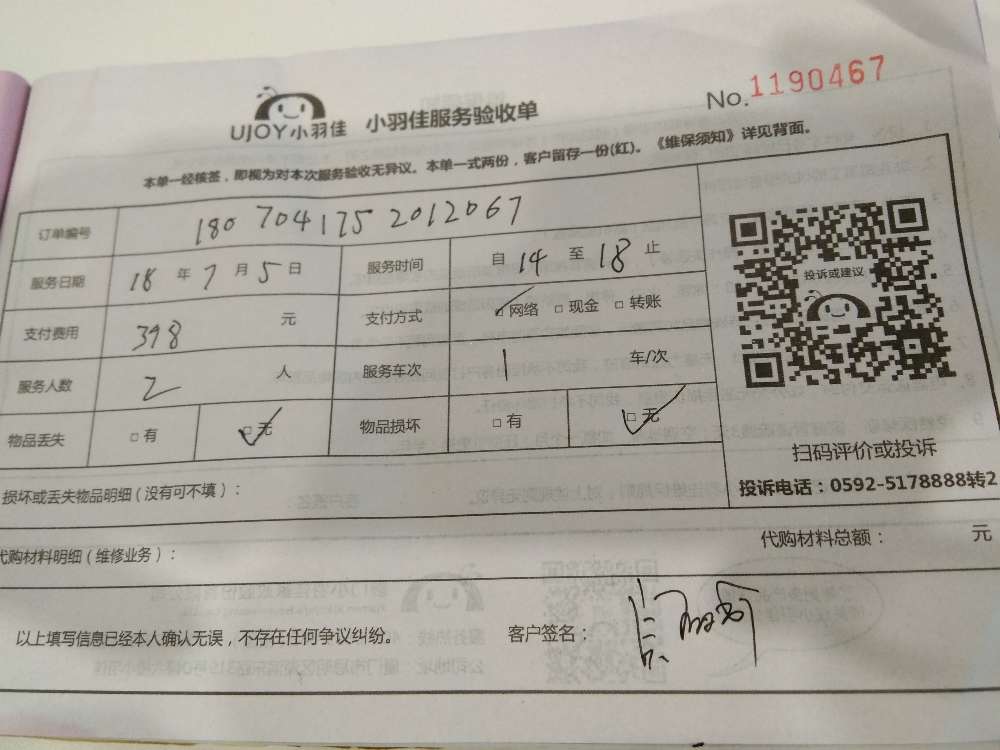 UJOY小羽佳 小羽佳服务验收单 No.1190467
本单一经核签，即视为对本次服务验收无异议。本单一式两份，客户留存一份(红)。《维保须知》详见背面。
订单编号 180 704175 2012067
服务日期 18 年 7 月 5 日 服务时间 自 14 至 18 止
支付费用 398 元 支付方式 ☑网络 □现金 □转账
服务人数 2 人 服务车次 1 车/次
物品丢失 □有 ☑无 物品损坏 □有 ☑无
投诉或建议
扫码评价或投诉
投诉电话：0592-5178888转2
损坏或丢失物品明细（没有可不填）：
代购材料明细（维修业务）： 代购材料总额： 元
以上填写信息已经本人确认无误，不存在任何争议纠纷。 客户签名：